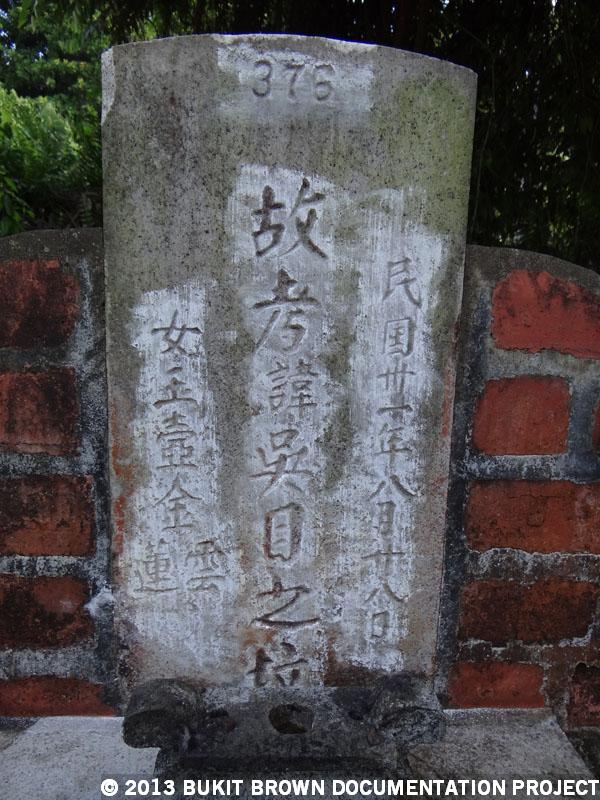 376
民国卅年八月廿八日
故考諱吳目之坟
女玉壺金雲蓮
© 2013 BUKIT BROWN DOCUMENTATION PROJECT